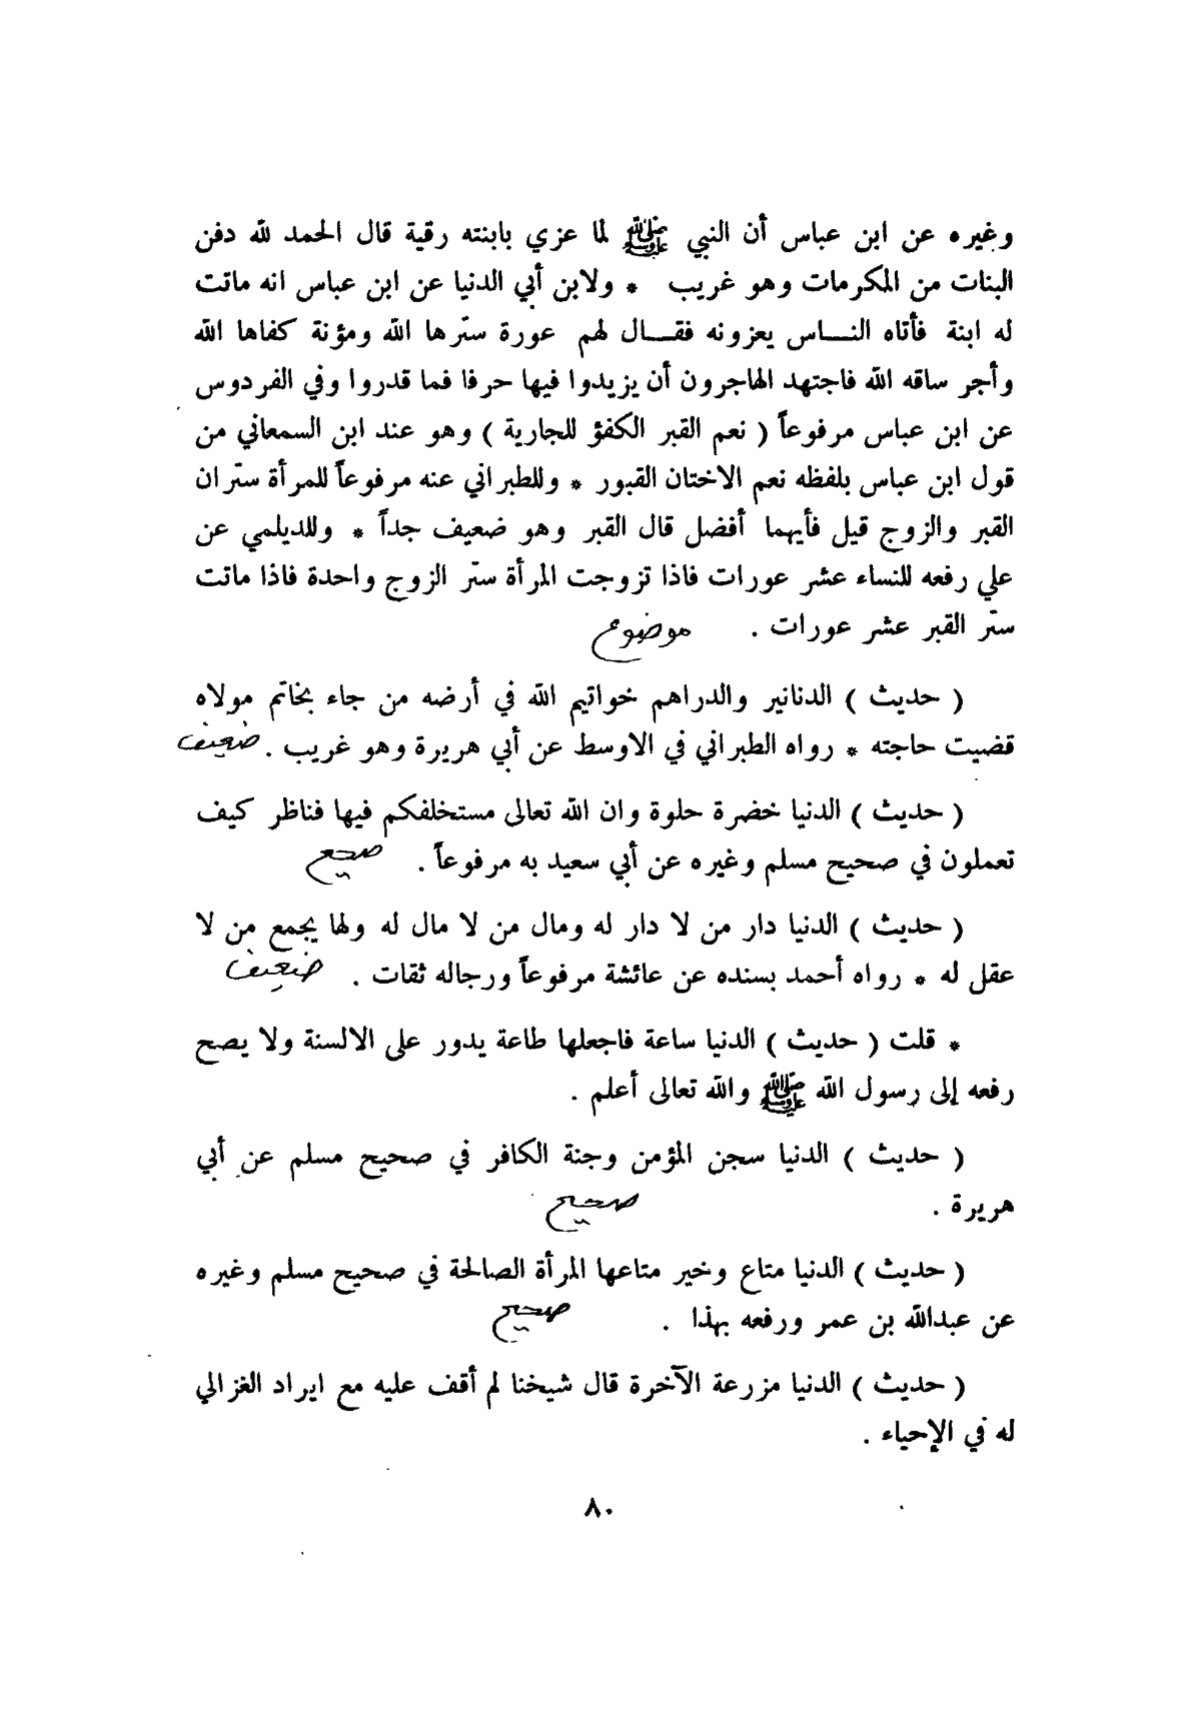 وغيره عن ابن عباس أن النبي ﷺ لما عزي بابنته رقية قال الحمد لله دفن
البنات من المكرمات وهو غريب * ولابن أبي الدنيا عن ابن عباس انه ماتت
له ابنة فأتاه النـــاس يعزونه فقـــال لهم عورة ستّرها الله ومؤنة كفاها الله
وأجر ساقه الله فاجتهد المهاجرون أن يزيدوا فيها حرفا فما قدروا وفي الفردوس
عن ابن عباس مرفوعاً ( نعم القبر الكفؤ للجارية ) وهو عند ابن السمعاني من
قول ابن عباس بلفظه نعم الاختان القبور * وللطبراني عنه مرفوعاً للمرأة ستّران
القبر والزوج قيل فأيهما أفضل قال القبر وهو ضعيف جداً * وللديلمي عن
علي رفعه للنساء عشر عورات فاذا تزوجت المرأة ستّر الزوج واحدة فاذا ماتت
ستّر القبر عشر عورات . موضوع
( حديث ) الدنانير والدراهم خواتيم الله في أرضه من جاء بخاتم مولاه
قضيت حاجته * رواه الطبراني في الاوسط عن أبي هريرة وهو غريب . ضعيف
( حديث ) الدنيا خضرة حلوة وان الله تعالى مستخلفكم فيها فناظر كيف
تعملون في صحيح مسلم وغيره عن أبي سعيد به مرفوعاً . صحيح
( حديث ) الدنيا دار من لا دار له ومال من لا مال له ولها يجمع من لا
عقل له * رواه أحمد بسنده عن عائشة مرفوعاً ورجاله ثقات . ضعيف
* قلت ( حديث ) الدنيا ساعة فاجعلها طاعة يدور على الالسنة ولا يصح
رفعه إلى رسول الله ﷺ والله تعالى أعلم .
( حديث ) الدنيا سجن المؤمن وجنة الكافر في صحيح مسلم عن أبي
هريرة . صحيح
( حديث ) الدنيا متاع وخير متاعها المرأة الصالحة في صحيح مسلم وغيره
عن عبدالله بن عمر ورفعه بهذا . صحيح
( حديث ) الدنيا مزرعة الآخرة قال شيخنا لم أقف عليه مع ايراد الغزالي
له في الإحياء .
٨٠